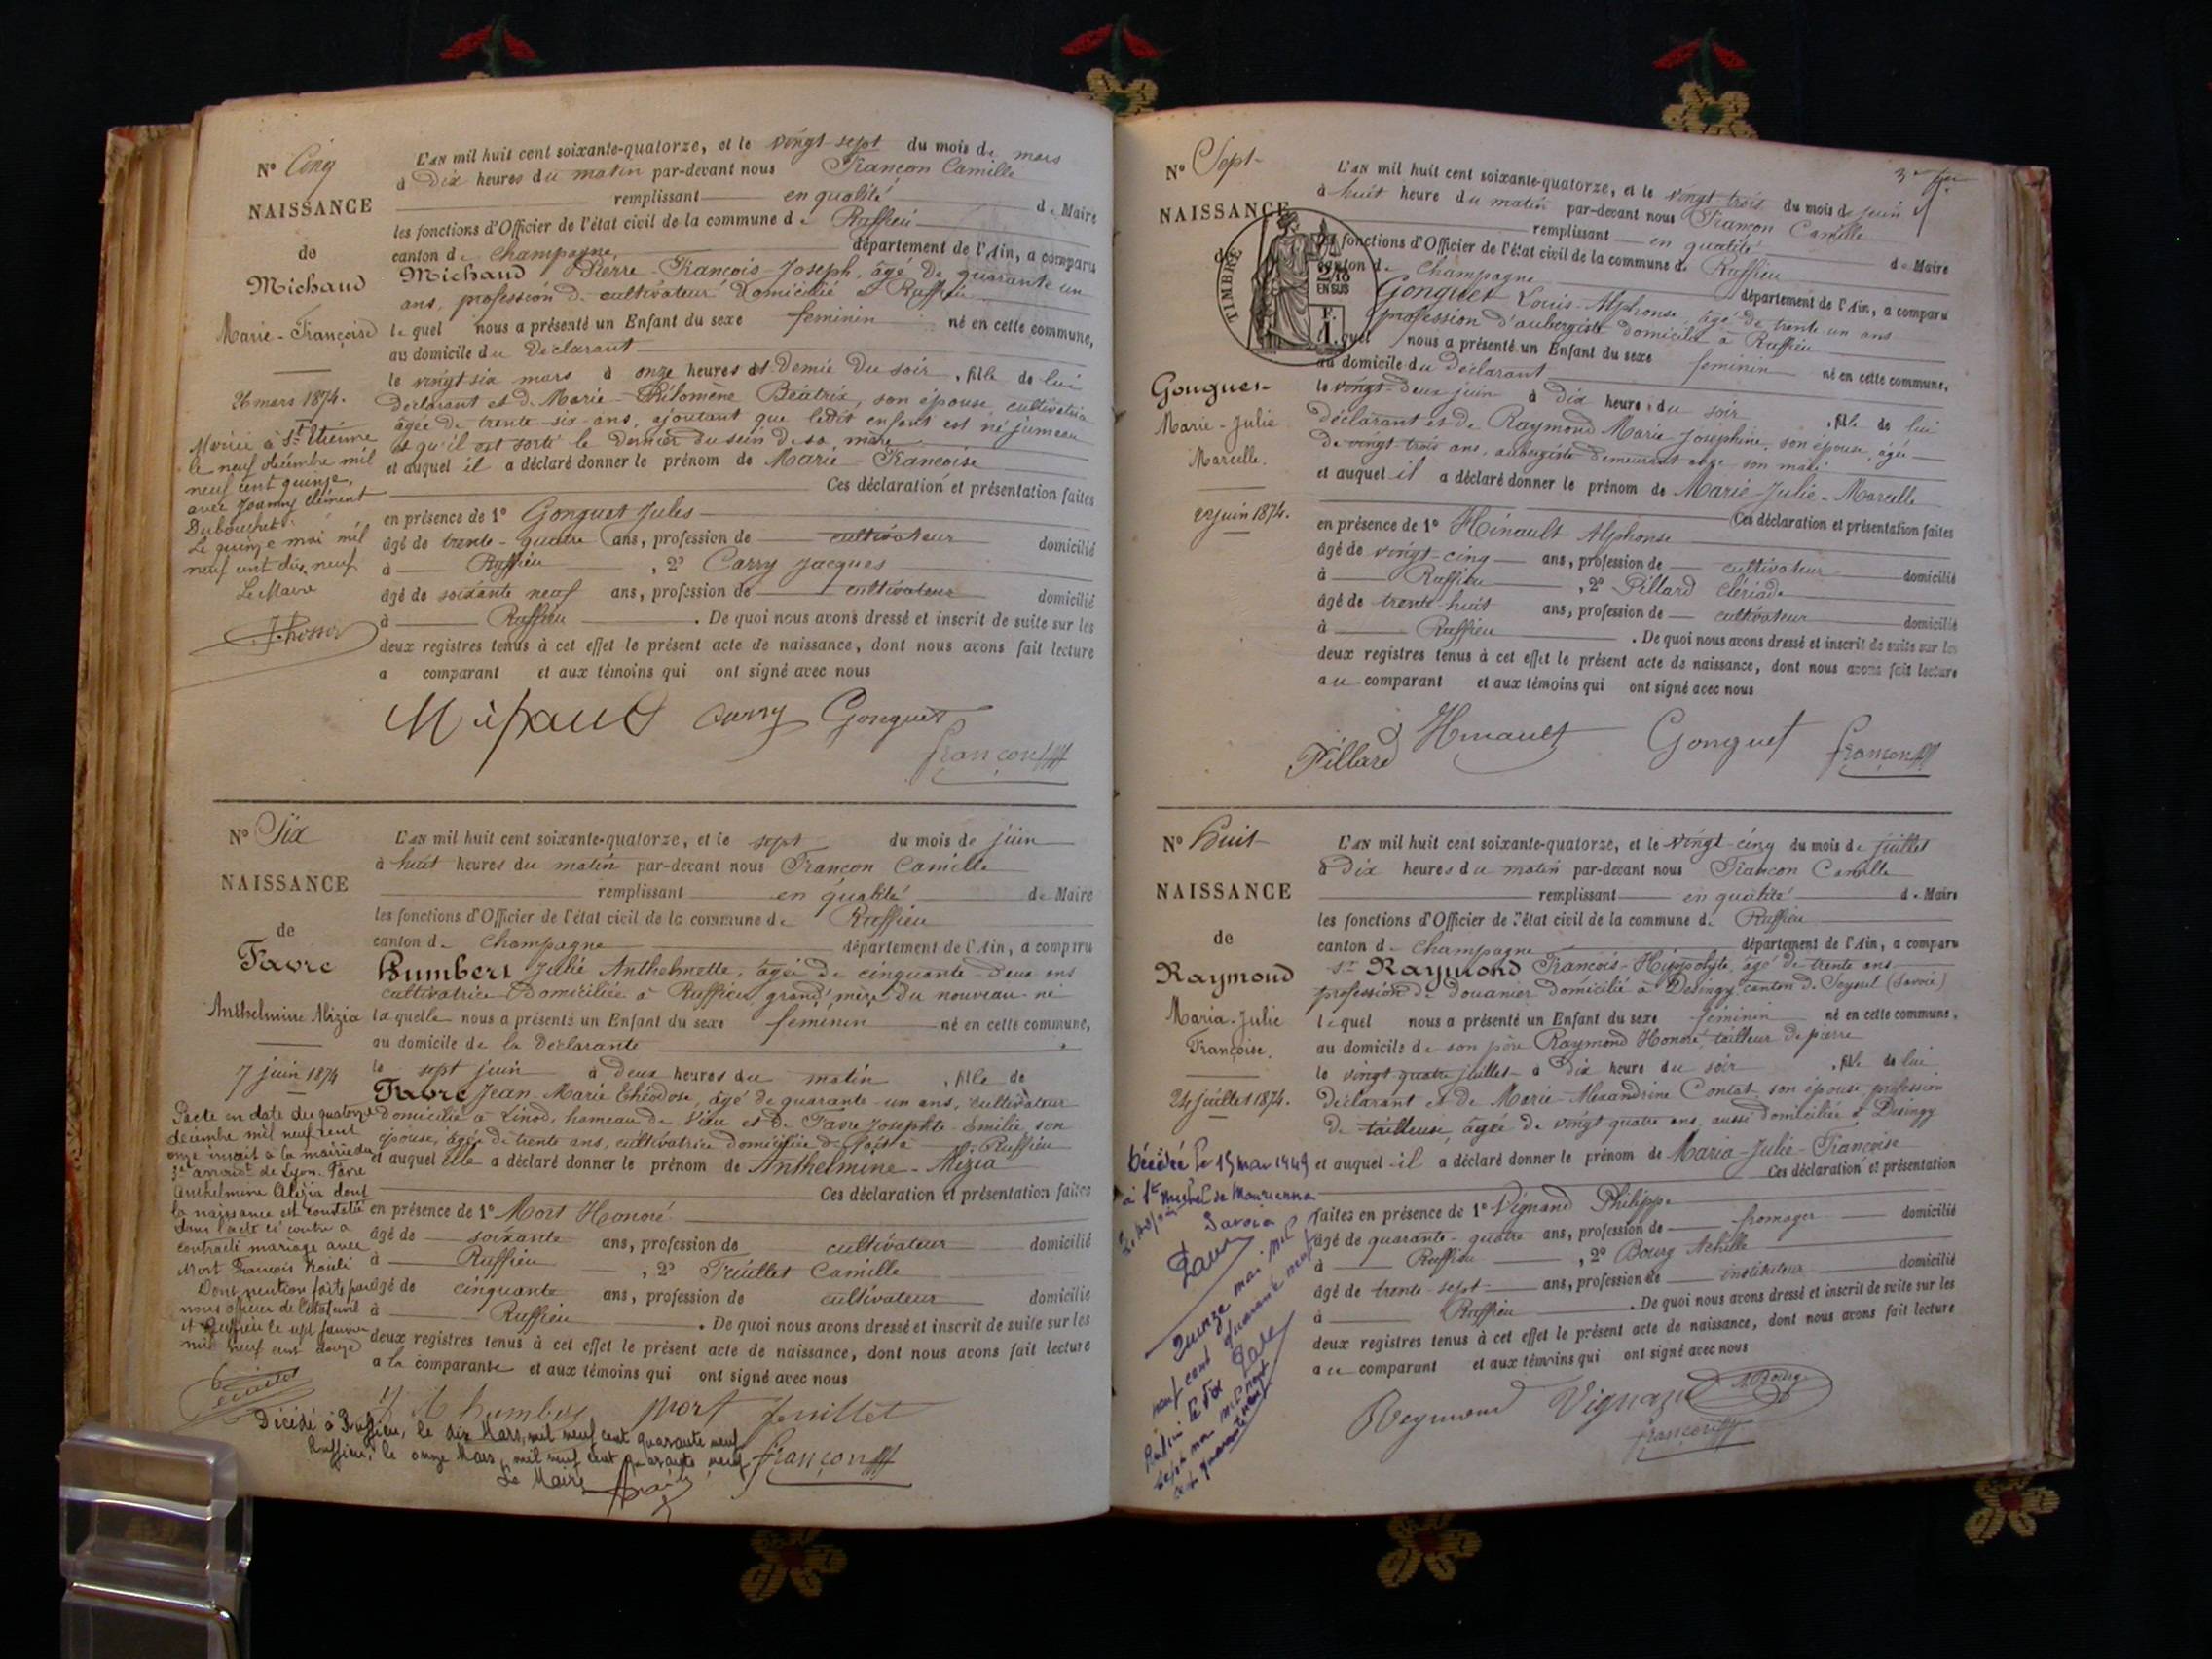 N° Cinq
NAISSANCE
de
Michaud
Marie-Françoise
26 mars 1874.
Mariée à St Etienne
le neuf décembre mil
neuf cent quinze,
avec Joanny Clément
Dubouchet.
Le quinze mai mil
neuf cent dix neuf
Le Maire
L'AN mil huit cent soixante-quatorze, et le vingt-sept du mois de mars
à dix heures du matin par-devant nous Françon Camille
remplissant en qualité de Maire
les fonctions d'Officier de l'état civil de la commune de Ruffieu
canton de Champagne, département de l'Ain, a comparu
Michaud Pierre-François-Joseph, âgé de quarante un
ans, profession de cultivateur domicilié à Ruffieu
lequel nous a présenté un Enfant du sexe féminin né en cette commune,
au domicile du déclarant
le vingt six mars à onze heures et demie du soir, fille de lui
déclarant et de Marie-Philomène Béatrix, son épouse, cultivatrice
âgée de trente-six ans, ajoutant que ledit enfant est né jumeau
et qu'il est sorti le dernier du sein de sa mère
et auquel il a déclaré donner le prénom de Marie-Françoise
Ces déclaration et présentation faites
en présence de 1° Gonguet Jules
âgé de trente-quatre ans, profession de cultivateur domicilié
à Ruffieu, 2° Carry Jacques
âgé de soixante neuf ans, profession de cultivateur domicilié
à Ruffieu. De quoi nous avons dressé et inscrit de suite sur les
deux registres tenus à cet effet le présent acte de naissance, dont nous avons fait lecture
a comparant et aux témoins qui ont signé avec nous
Michaud Carry Gonguet
Françon
N° Six
NAISSANCE
de
Favre
Anthelmine Alizia
7 juin 1874
Par acte en date du quatorze
décembre mil neuf cent
onze inscrit à la mairie du
3e arrondt de Lyon. Favre
Anthelmine Alizia dont
la naissance est constatée
dans l'acte ci contre a
contracté mariage avec
Mort François
Dont mention faite par
nous officier de l'état civil
à Ruffieu le sept janvier
mil neuf cent douze
L'AN mil huit cent soixante-quatorze, et le sept du mois de juin
à huit heures du matin par-devant nous Françon Camille
remplissant en qualité de Maire
les fonctions d'Officier de l'état civil de la commune de Ruffieu
canton de Champagne département de l'Ain, a comparu
Humbert Julie Anthelmette, âgée de cinquante-deux ans
cultivatrice domiciliée à Ruffieu, grand'mère du nouveau né
laquelle nous a présenté un Enfant du sexe féminin né en cette commune,
au domicile de la déclarante
le sept juin à deux heures du matin, fille de
Favre Jean-Marie Théodose, âgé de quarante-un ans, cultivateur
domicilié à Linod, hameau de Vieu et de Favre Josephte-Emilie, son
épouse, âgée de trente ans, cultivatrice domiciliée de fait à Ruffieu
et auquel elle a déclaré donner le prénom de Anthelmine-Alizia
Ces déclaration et présentation faites
en présence de 1° Mort Honoré
âgé de soixante ans, profession de cultivateur domicilié
à Ruffieu, 2° Juillet Camille
âgé de cinquante ans, profession de cultivateur domicilié
à Ruffieu. De quoi nous avons dressé et inscrit de suite sur les
deux registres tenus à cet effet le présent acte de naissance, dont nous avons fait lecture
a la comparante et aux témoins qui ont signé avec nous
humbert mort Juillet
Françon
Décédé à Ruffieu, le dix Mars, mil neuf cent quarante neuf
Ruffieu, le onze Mars, mil neuf cent quarante neuf
Le Maire
3e
N° Sept
NAISSANCE
de
TIMBRE
2/10
EN SUS
F.
1.
Gonguet
Marie-Julie
Marcelle.
22 juin 1874.
L'AN mil huit cent soixante-quatorze, et le vingt-trois du mois de juin
à huit heure du matin par-devant nous Françon Camille
remplissant en qualité de Maire
les fonctions d'Officier de l'état civil de la commune de Ruffieu
canton de Champagne département de l'Ain, a comparu
Gonguet Louis-Alphonse, âgé de trente-un ans
profession d'aubergiste domicilié à Ruffieu
lequel nous a présenté un Enfant du sexe féminin né en cette commune,
au domicile du déclarant
le vingt-deux juin à dix heures du soir, fille de lui
déclarant et de Raymond Marie Joséphine, son épouse, âgée
de vingt-trois ans, aubergiste demeurant avec son mari
et auquel il a déclaré donner le prénom de Marie-Julie-Marcelle
Ces déclaration et présentation faites
en présence de 1° Hinault Alphonse
âgé de vingt-cinq ans, profession de cultivateur domicilié
à Ruffieu, 2° Pillard Clériade
âgé de trente-huit ans, profession de cultivateur domicilié
à Ruffieu. De quoi nous avons dressé et inscrit de suite sur les
deux registres tenus à cet effet le présent acte de naissance, dont nous avons fait lecture
au comparant et aux témoins qui ont signé avec nous
Pillard Hinault Gonguet Françon
N° Huit
NAISSANCE
de
Raymond
Maria-Julie
Françoise.
24 juillet 1874.
Décédée le 15 mai 1949
à St Michel de Maurienne
Savoie
Quinze mai mil
neuf cent quarante neuf
L'AN mil huit cent soixante-quatorze, et le vingt-cinq du mois de juillet
à dix heures du matin par-devant nous Françon Camille
remplissant en qualité de Maire
les fonctions d'Officier de l'état civil de la commune de Ruffieu
canton de Champagne département de l'Ain, a comparu
sr Raymond François-Hippolyte, âgé de trente ans
profession de douanier domicilié à Desingy, canton de Seyssel (Savoie)
lequel nous a présenté un Enfant du sexe féminin né en cette commune,
au domicile de son père Raymond Honoré, tailleur de pierre
le vingt quatre juillet à dix heure du soir, fille de lui
déclarant et de Marie-Alexandrine Contat son épouse profession
de tailleuse, âgée de vingt quatre ans, aussi domiciliée à Desingy
et auquel il a déclaré donner le prénom de Maria-Julie-Françoise
Ces déclaration et présentation
faites en présence de 1° Vignand Philippe
âgé de quarante-quatre ans, profession de fromager domicilié
à Ruffieu, 2° Bourg Achille
âgé de trente-sept ans, profession de instituteur domicilié
à Ruffieu. De quoi nous avons dressé et inscrit de suite sur les
deux registres tenus à cet effet le présent acte de naissance, dont nous avons fait lecture
au comparant et aux témoins qui ont signé avec nous
Reymond Vignand A Bourg
Françon